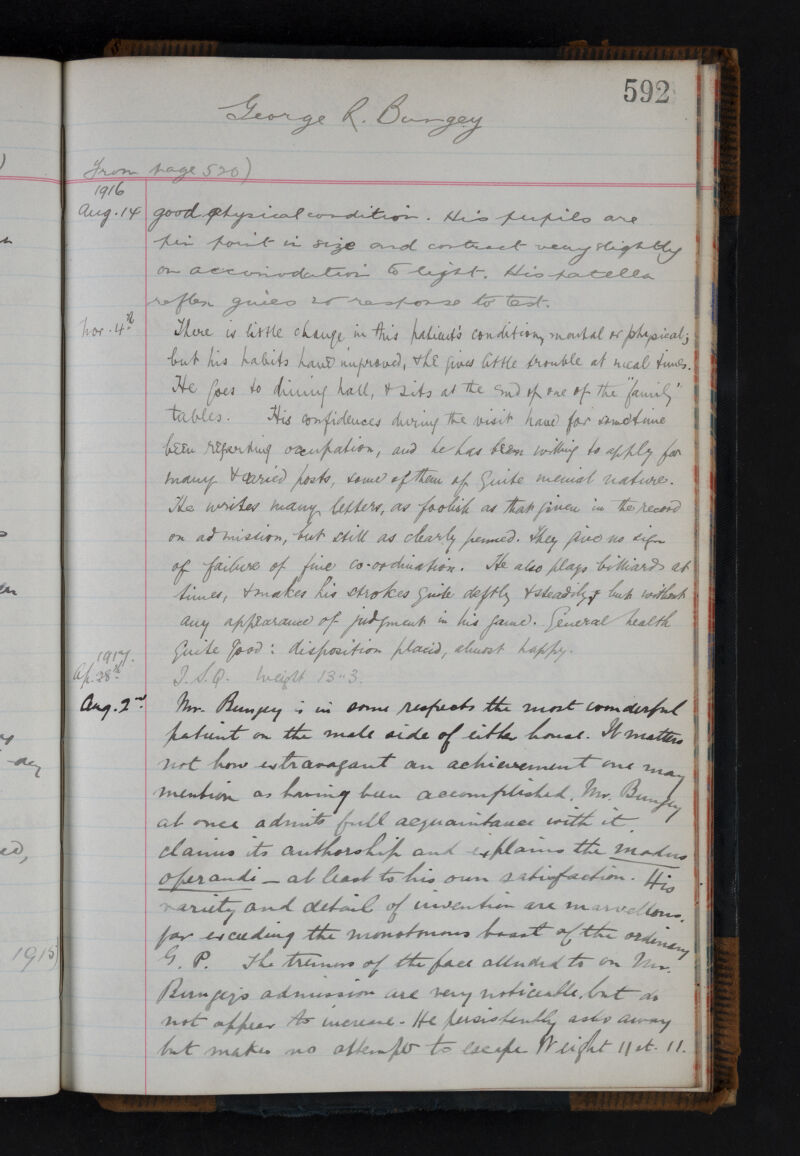 592
George R. Bungey
From page 520)
1916
Aug. 14 good physical condition. His pupils are
pin point in size and contract very slightly
on accomodation to light. His patella
reflex gives no response to test.
Nov. 4th There is little change in this patient's condition, mental or physical;
but his habits have improved, & he gives little trouble at meal times.
He goes to dining hall, & sits at the end of one of the "family"
tables. His confidences during the visit have for sometime
been regarding occupation, and he has been willing to apply for
many & varied posts, some of them of quite menial nature.
He writes many letters, as foolish as that given in the record
on admission, but still as clearly penned. They give no sign
of failure of fine co-ordination. He also plays billiards at
times, & makes his strokes quite deftly & steadily, but without
any appearance of judgment in his game. General health
quite good: disposition placid, almost happy.
1917.
Ap. 28th I.S.Q. Weight 13-3.
Aug. 2nd Mr. Bungey is in some respects the most wonderful
patient on the male side of either house. It matters
not how extravagant an achievement one may
mention as having been accomplished, Mr. Bungey
at once admits full acquaintance with it,
claims its authorship and explains the modus
operandi – at least to his own satisfaction. His
variety and detail of invention are marvellous,
far exceeding the monotonous boast of the ordinary
G. P. The tremors of the face alluded to on Mr.
Bungey's admission are very noticeable, but do
not appear to increase. He persistently asks away
but makes no attempt to escape. Weight 11 st. 11.
1915)